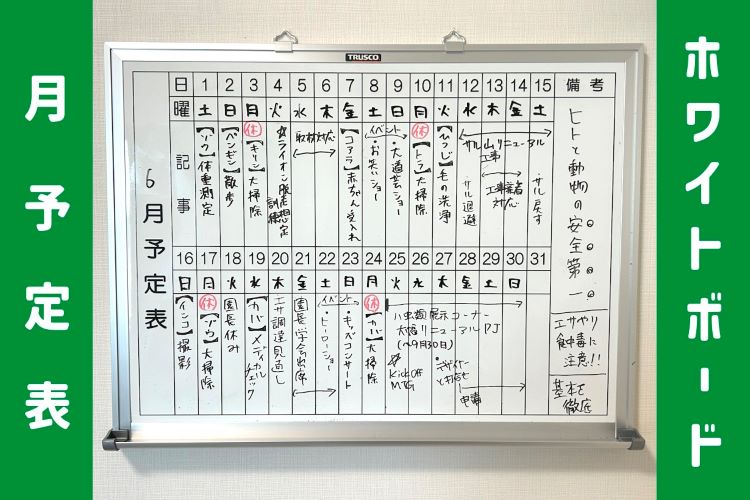 月予定表
ホワイトボード
TRUSCO
6月予定表
日 1 2 3 4 5 6 7 8 9 10 11 12 13 14 15 備考
曜 土 日 月 火 水 木 金 土 日 月 火 水 木 金 土
記事
【ゾウ】体重測定
【ペンギン】散歩
休
【キリン】大掃除
☆ライオン脱走想定
訓練
取材対応
【コアラ】赤ちゃん受入れ
イベント
・お笑いショー
・大道芸ショー
休
【トラ】大掃除
【ひつじ】毛の洗浄
サル山リニューアル
工事
サル退避
工事業者
対応
サル戻す
ヒトと動物の安全第一
16 17 18 19 20 21 22 23 24 25 26 27 28 29 30 31
日 月 火 水 木 金 土 日 月 火 水 木 金 土 日
【インコ】撮影
休
【ゾウ】大掃除
園長休み
【カバ】メディカル
チェック
エサ調達見直し
園長学会出席
イベント
・ヒーローショー
・キッズコンサート
休
【カバ】大掃除
ハ虫類展示コーナー
大幅リニューアルPJ
(~9月30日)
☆
Kick Off
MTG
・デザイナー
と打合せ
申請
エサやり
食中毒に
注意!!
基本を
徹底